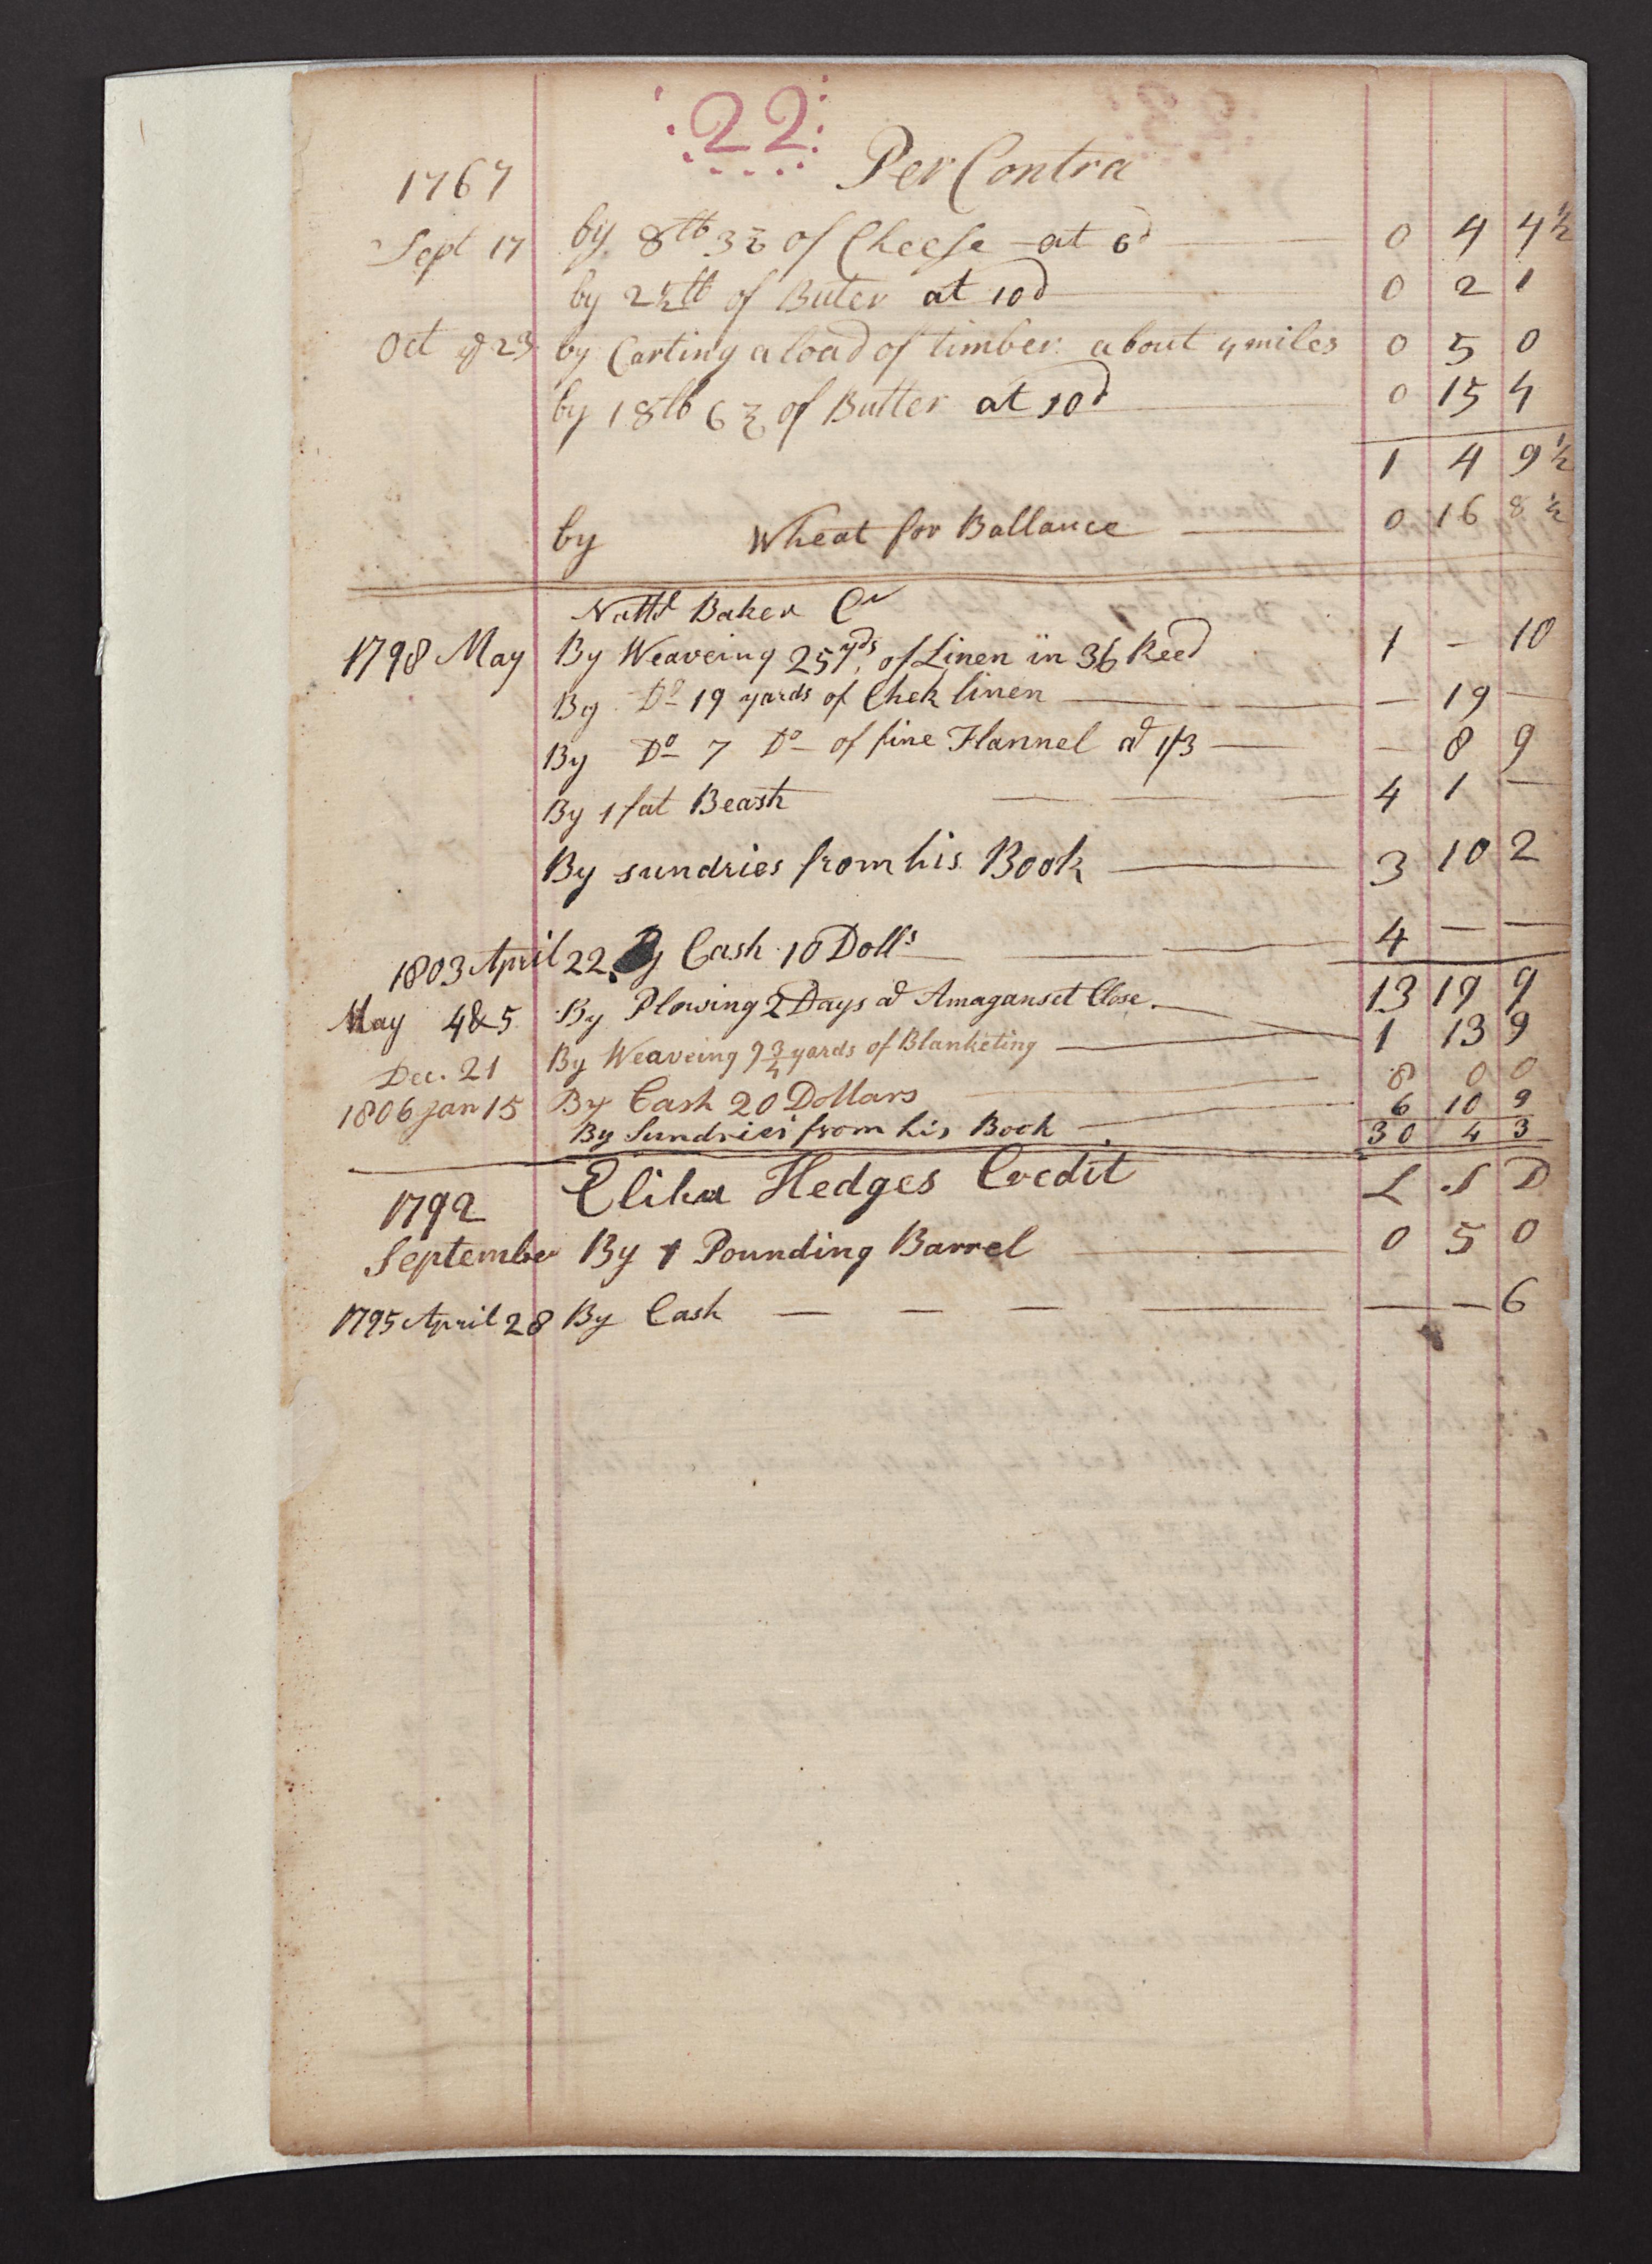 :22:
1767 Per Contra
Sept 17 by 8 lb 3 oz of Cheese at 6d 0 4 4½
by 2½ lb of Buter at 10d 0 2 1
Oct ye 23 by Carting a load of timber about 4 miles 0 5 0
by 18 lb 6 oz of Butter at 10d 0 15 4
1 4 9½
by Wheat for Ballance 0 16 8½
Nathl Baker Cr
1798 May By Weaveing 25 yds of Linen in 36 Reed 1 – 10
By Do 19 yards of Chek linen – 19 –
By Do 7 Do of fine Flannel ad 1/3 – 8 9
By 1 fat Beast 4 1 –
By sundries from his Book 3 10 2
1803 April 22. By Cash 10 Dolls 4 – –
13 19 9
May 4 & 5 By Plowing 2 Days ad Amaganset Close
Dec. 21 By Weaveing 9¾ yards of Blanketing 1 13 9
1806 Jan 15 By Cash 20 Dollars 8 0 0
By Sundries from his Book 6 10 9
30 4 3
1792 Elihu Hedges Credit L S D
September By 1 Pounding Barrel 0 5 0
1795 April 28 By Cash – – 6